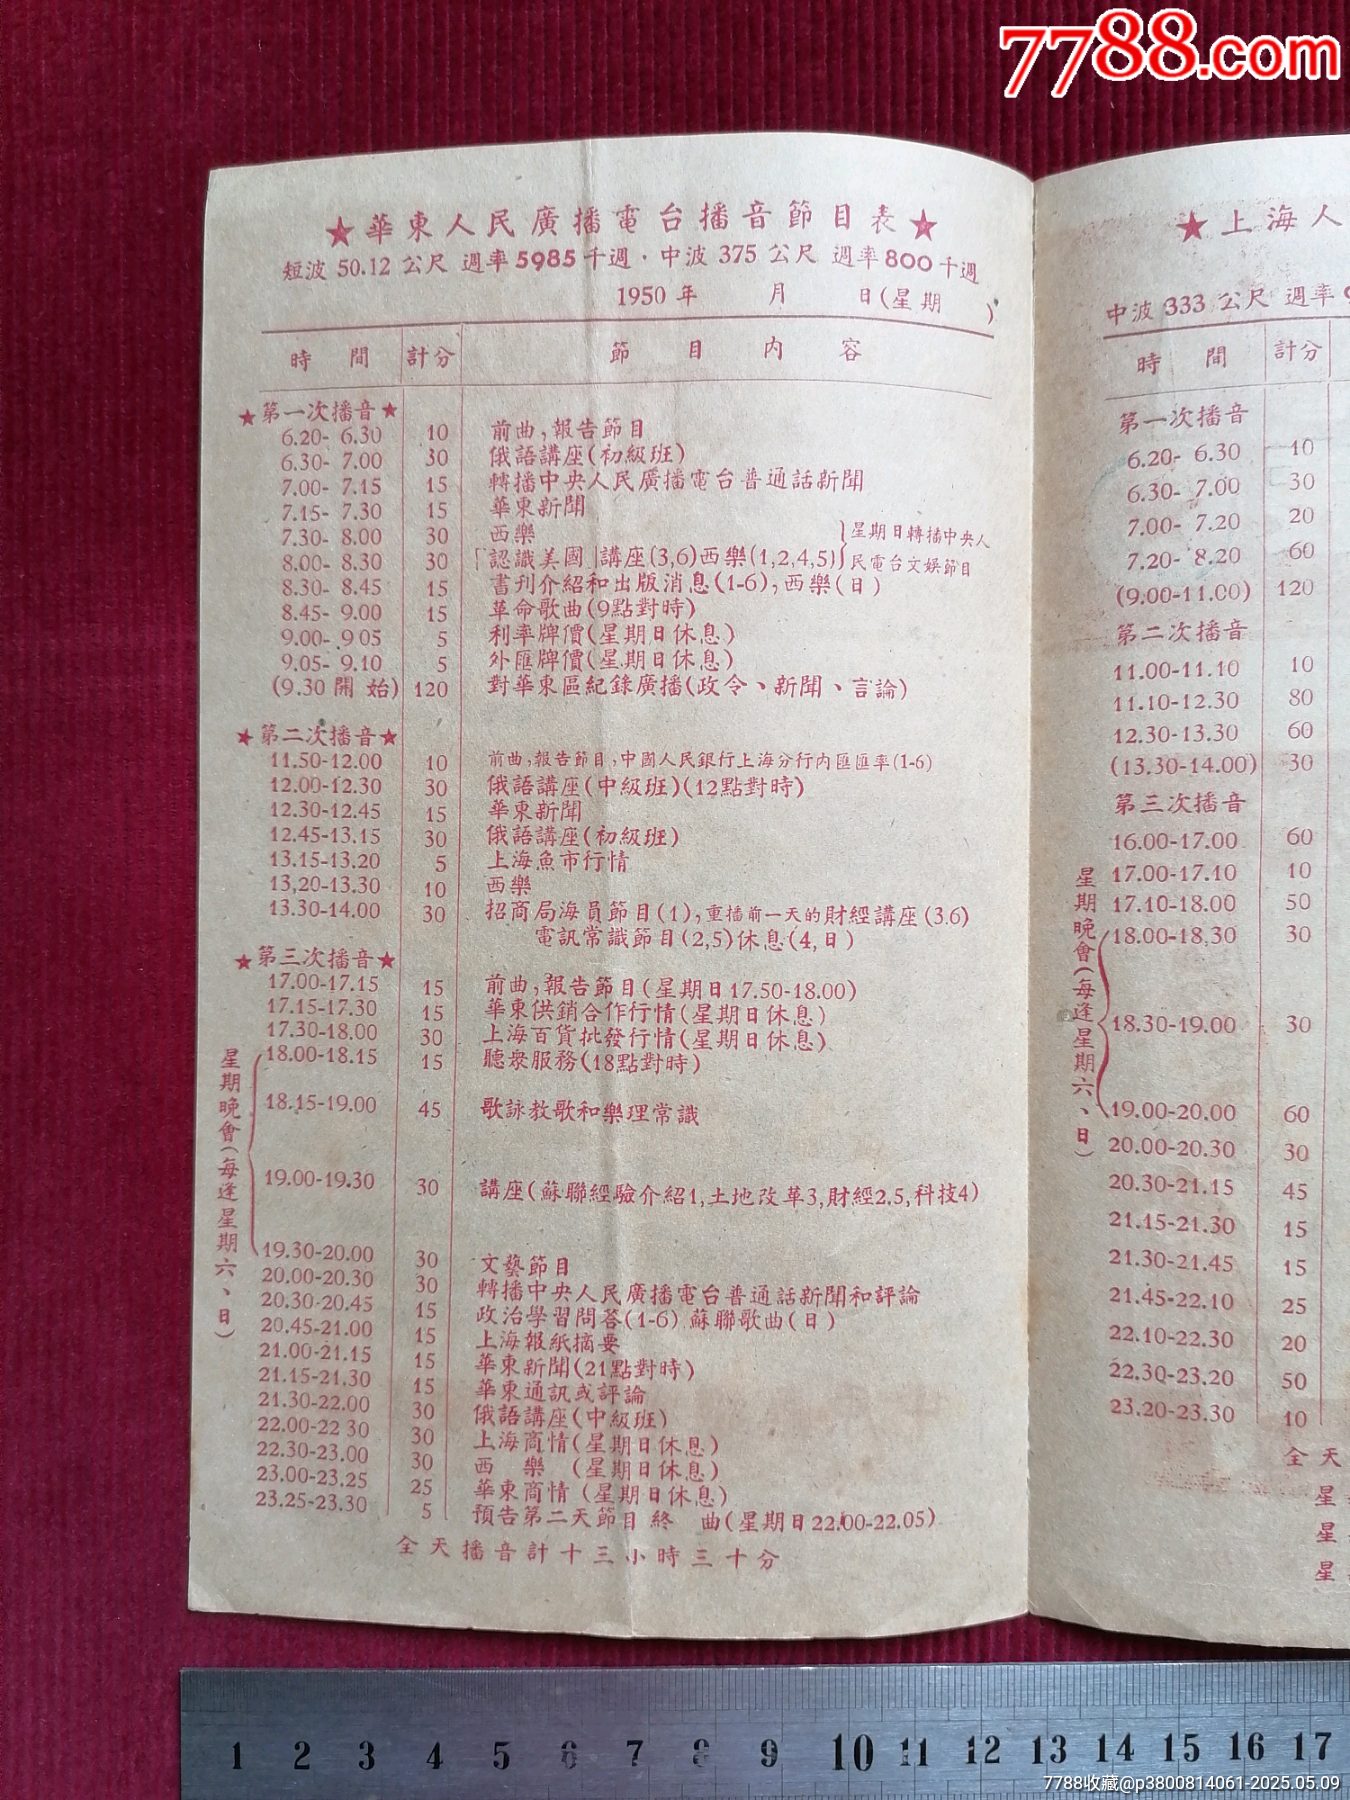 7788.com
★華東人民廣播電台播音節目表★
短波 50.12 公尺 週率 5985 千週·中波 375 公尺 週率 800 千週
1950 年 月 日(星期 )
時 間 計分 節 目 內 容
★第一次播音★
6.20- 6.30 10 前曲,報告節目
6.30- 7.00 30 俄語講座(初級班)
7.00- 7.15 15 轉播中央人民廣播電台普通話新聞
7.15- 7.30 15 華東新聞
7.30- 8.00 30 西樂
8.00- 8.30 30 「認識美國」講座(3,6)西樂(1,2,4,5)
}星期日轉播中央人
民電台文娛節目
8.30- 8.45 15 書刊介紹和出版消息(1-6),西樂(日)
8.45- 9.00 15 革命歌曲(9點對時)
9.00- 9 05 5 利率牌價(星期日休息)
9.05- 9.10 5 外匯牌價(星期日休息)
(9.30 開 始) 120 對華東區紀錄廣播(政令、新聞、言論)
★第二次播音★
11.50-12.00 10 前曲,報告節目,中國人民銀行上海分行內匯匯率(1-6)
12.00-12.30 30 俄語講座(中級班)(12點對時)
12.30-12.45 15 華東新聞
12.45-13.15 30 俄語講座(初級班)
13.15-13.20 5 上海魚市行情
13,20-13.30 10 西樂
13.30-14.00 30 招商局海員節目(1),重播前一天的財經講座(3.6)
電訊常識節目(2,5)休息(4,日)
★第三次播音★
17.00-17.15 15 前曲,報告節目(星期日17.50-18.00)
17.15-17.30 15 華東供銷合作行情(星期日休息)
17.30-18.00 30 上海百貨批發行情(星期日休息)
18.00-18.15 15 聽衆服務(18點對時)
18.15-19.00 45 歌詠教歌和樂理常識
19.00-19.30 30 講座(蘇聯經驗介紹1,土地改革3,財經2.5,科技4)
19.30-20.00 30 文藝節目
星期晚會(每逢星期六、日)
20.00-20.30 30 轉播中央人民廣播電台普通話新聞和評論
20.30-20.45 15 政治學習問答(1-6) 蘇聯歌曲(日)
20.45-21.00 15 上海報紙摘要
21.00-21.15 15 華東新聞(21點對時)
21.15-21.30 15 華東通訊或評論
21.30-22.00 30 俄語講座(中級班)
22.00-22 30 30 上海商情(星期日休息)
22.30-23.00 30 西 樂 (星期日休息)
23.00-23.25 25 華東商情 (星期日休息)
23.25-23.30 5 預告第二天節目 終 曲(星期日22.00-22.05)
全天播音計十三小時三十分
★上海人
中波 333 公尺 週率
時 間 計分
第一次播音
6.20- 6.30 10
6.30- 7.00 30
7.00- 7.20 20
7.20- 8.20 60
(9.00-11.00) 120
第二次播音
11.00-11.10 10
11.10-12.30 80
12.30-13.30 60
(13.30-14.00) 30
第三次播音
16.00-17.00 60
17.00-17.10 10
17.10-18.00 50
18.00-18,30 30
18.30-19.00 30
19.00-20.00 60
星期晚會(每逢星期六、日)
20.00-20.30 30
20.30-21.15 45
21.15-21.30 15
21.30-21.45 15
21.45-22.10 25
22.10-22.30 20
22.30-23.20 50
23.20-23.30 10
全天
星
星
星
1 2 3 4 5 6 7 8 9 10 11 12 13 14 15 16 17
7788收藏@p3800814061-2025.05.09